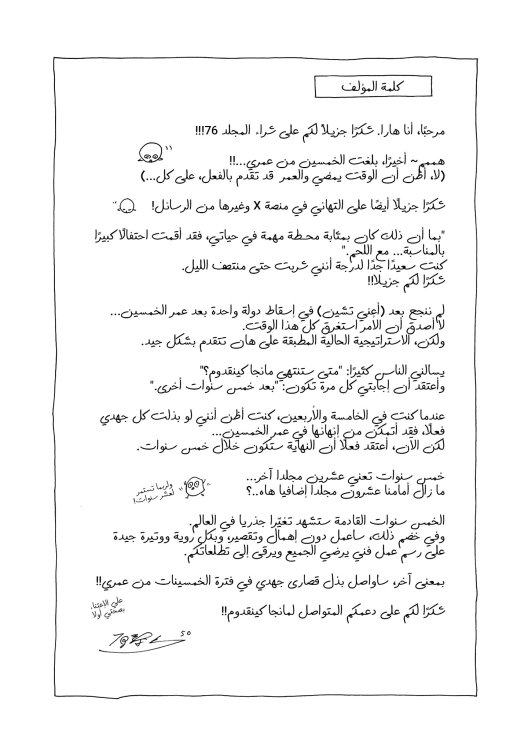 كلمة المؤلف
مرحبًا، أنا هارا. شكرًا جزيلاً لكم على شراء المجلد 76!!!
هممم~ أخيرًا، بلغت الخمسين من عمري...!!
(لا، أظن أن الوقت يمضي والعمر قد تقدم بالفعل، على كل...)
شكرًا جزيلًا أيضًا على التهاني في منصة X وغيرها من الرسائل!
"بما أن ذلك كان بمثابة محطة مهمة في حياتي، فقد أقمت احتفالًا كبيرًا
بالمناسبة... مع اللحم."
كنت سعيدًا جدًا لدرجة أنني شربت حتى منتصف الليل.
شكرًا لكم جزيلًا!!
لم ننجح بعد (أعني تشين) في إسقاط دولة واحدة بعد عمر الخمسين...
لا أصدق أن الأمر استغرق كل هذا الوقت.
ولكن، الاستراتيجية الحالية المطبقة على هان تتقدم بشكل جيد.
يسألني الناس كثيرًا: "متى ستنتهي مانجا كينقدوم؟"
وأعتقد أن إجابتي كل مرة تكون: "بعد خمس سنوات أخرى."
عندما كنت في الخامسة والأربعين، كنت أظن أنني لو بذلت كل جهدي
فعلًا، فقد أتمكن من إنهائها في عمر الخمسين...
لكن الآن، أعتقد فعلًا أن النهاية ستكون خلال خمس سنوات.
خمس سنوات تعني عشرين مجلدا آخر...
ما زال أمامنا عشرون مجلدًا إضافيا هاه..؟
ولربما تستمر
لعشر سنوات!
الخمس سنوات القادمة ستشهد تغيّرا جذريا في العالم.
وفي خضم ذلك، سأعمل دون إهمال وتقصير، وبكل روية ووتيرة جيدة
على رسم عمل فني يرضي الجميع ويرقى إلى تطلعاتكم.
بمعنى آخر، سأواصل بذل قصارى جهدي في فترة الخمسينات من عمري!!
شكرًا لكم على دعمكم المتواصل لمانجا كينقدوم!!
علي الاعتناء
بصحتي أولا
50